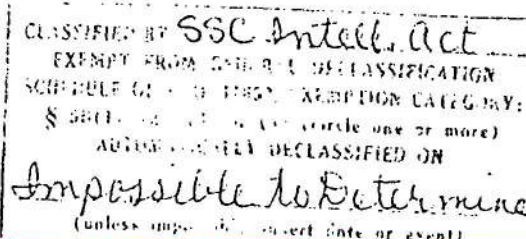 CLASSIFIED BY SSC Intell. Act
EXEMPT FROM DECLASSIFICATION
SCHEDULE OF EXEMPTION CATEGORY:
§ (circle one or more)
DECLASSIFIED ON
Impossible to Determine
(unless insert date or event)